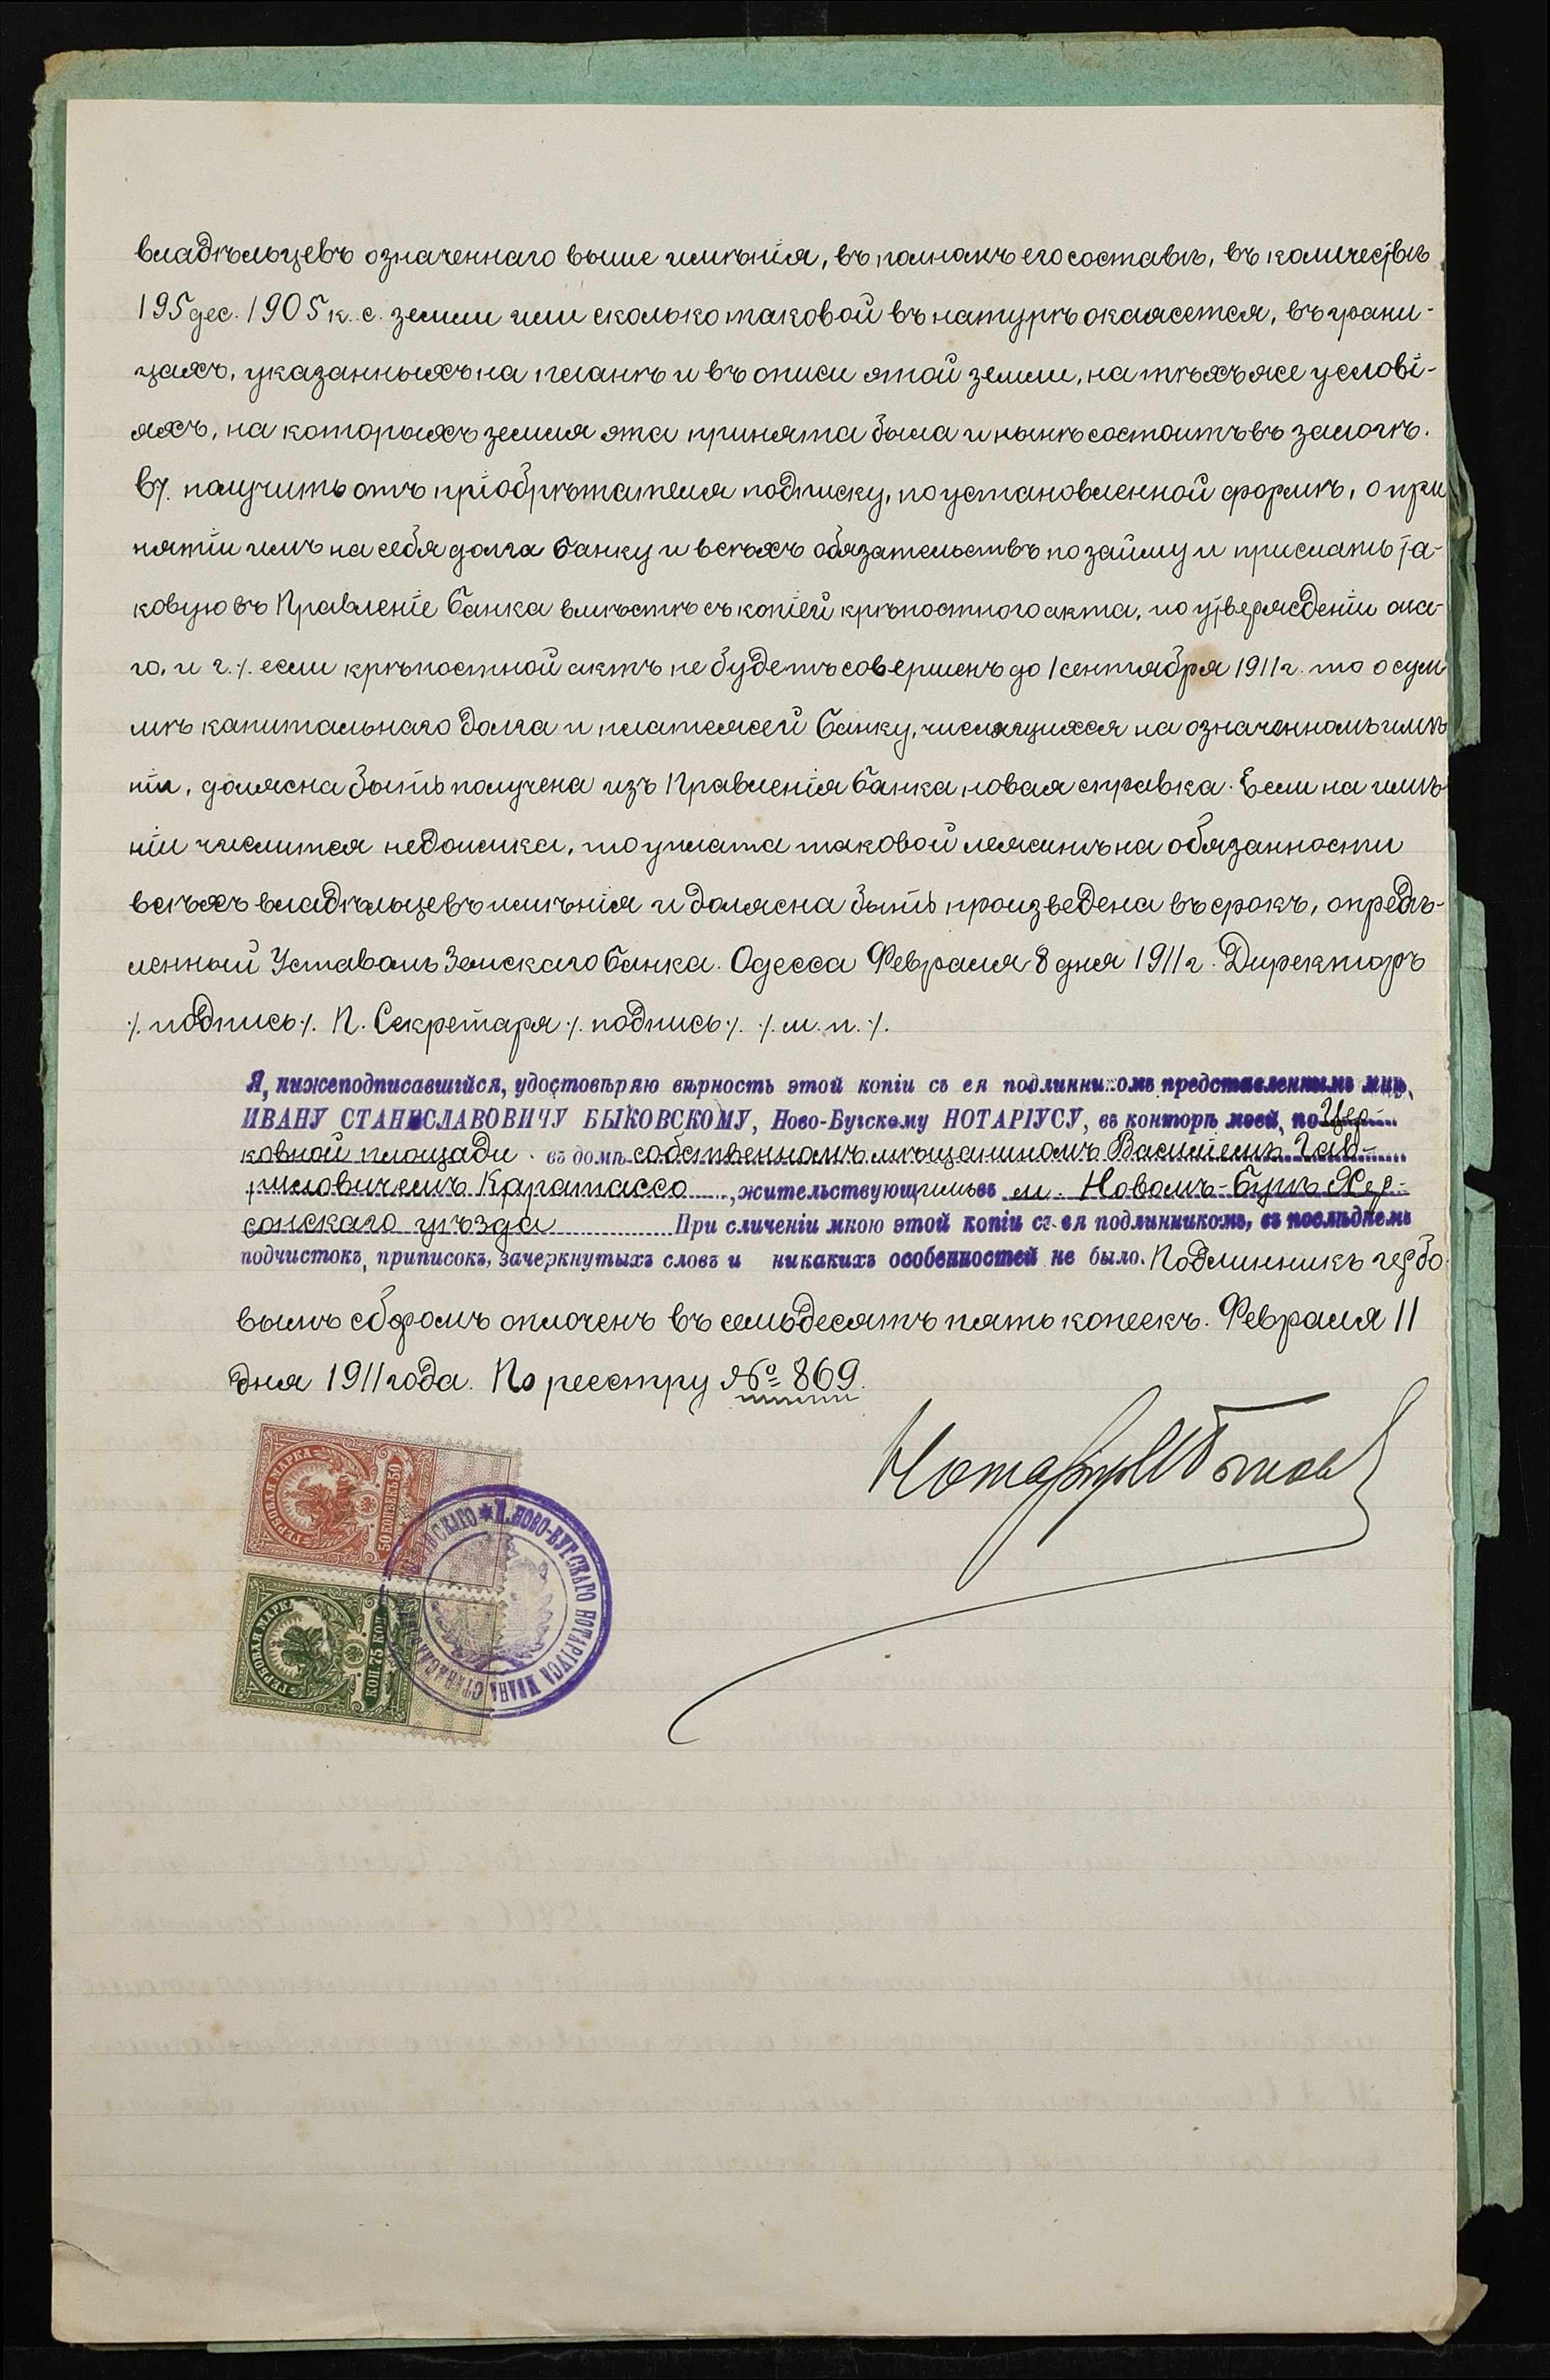 владѣльцевъ означеннаго выше имѣнія, въ полномъ его составѣ, въ количествѣ
195 дес. 1905 к. с. земли или сколько таковой въ натурѣ окажется, въ грани-
цахъ, указанныхъ на планѣ и въ описи этой земли, на тѣхъ же услові-
яхъ, на которыхъ земля эта принята была и нынѣ состоитъ въ залогѣ.
в/. получить отъ пріобрѣтателя подписку, по установленной формѣ, о при
нятіи имъ на себя долга банку и всѣхъ обязательствъ по займу и прислать та-
ковую въ Правленіе банка вмѣстѣ съ копіей крѣпостного акта, по утвержденіи она-
го, и г./. если крѣпостной актъ не будетъ совершенъ до 1 сентября 1911 г. то о сум
мѣ капитальнаго долга и платежей банку, числящихся на означенномъ имѣ
ніи, должна быть получена изъ Правленія банка новая справка. Если на имѣ
ніи числится недоимка, то уплата таковой лежитъ на обязанности
всѣхъ владѣльцевъ имѣнія и должна быть произведена въ срокъ, опредѣ-
ленный Уставомъ Земскаго банка. Одесса Февраля 8 дня 1911 г. Директоръ
./. подпись ./. П. Секретаря ./. подпись ./. ./. м. п. ./.
Я, нижеподписавшійся, удостовѣряю вѣрность этой копіи съ ея подлинникомъ представленнымъ мнѣ,
ИВАНУ СТАНИСЛАВОВИЧУ БЫКОВСКОМУ, Ново-Бугскому НОТАРІУСУ, въ конторѣ моей, по Цер-
ковной площади въ домѣ собственномъ мѣщаниномъ Василіемъ Гав-
риловичемъ Каратассо, жительствующимъ въ м. Новомъ-Бугѣ Хер-
сонскаго уѣзда При сличеніи мною этой копіи съ ея подлинникомъ, въ послѣднемъ
подчистокъ, приписокъ, зачеркнутыхъ словъ и никакихъ особенностей не было. Подлинникъ гербо
вымъ сборомъ оплоченъ въ семьдесятъ пять копеекъ. Февраля 11
дня 1911 года. По реестру № 869.
Нотаріусъ И Быков
ГЕРБОВАЯ МАРКА
50 КОПѢЕКЪ 50
ГЕРБОВАЯ МАРКА
КОП 75 КОП
П. НОВО-БУГСКАГО НОТАРІУСА ИВАНА СТАНИСЛАВОВИЧА БЫКОВСКАГО